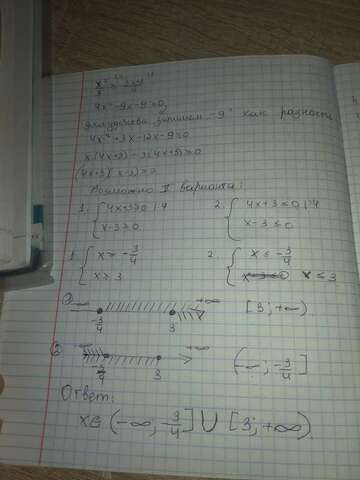 x² / 3 ≥ 3x+3 / 4
4x² - 9x - 9 ≥ 0,
запишем -9 как разность
4x² + 3x - 12x - 9 ≥ 0
x(4x+3) - 3(4x+3) ≥ 0
(4x+3)(x-3) ≥ 0
Возможно II варианта:
1. { 4x+3 ≥ 0 |:4 2. { 4x+3 ≤ 0 |:4
x-3 ≥ 0 x-3 ≤ 0
1 { x ≥ -3/4 2. { x ≤ -3/4
x ≥ 3 x ≤ 3
① -∞ -3/4 3 +∞ [3; +∞)
② -∞ -3/4 3 +∞ (-∞; -3/4]
Ответ:
x∈(-∞; -3/4] ∪ [3; +∞)